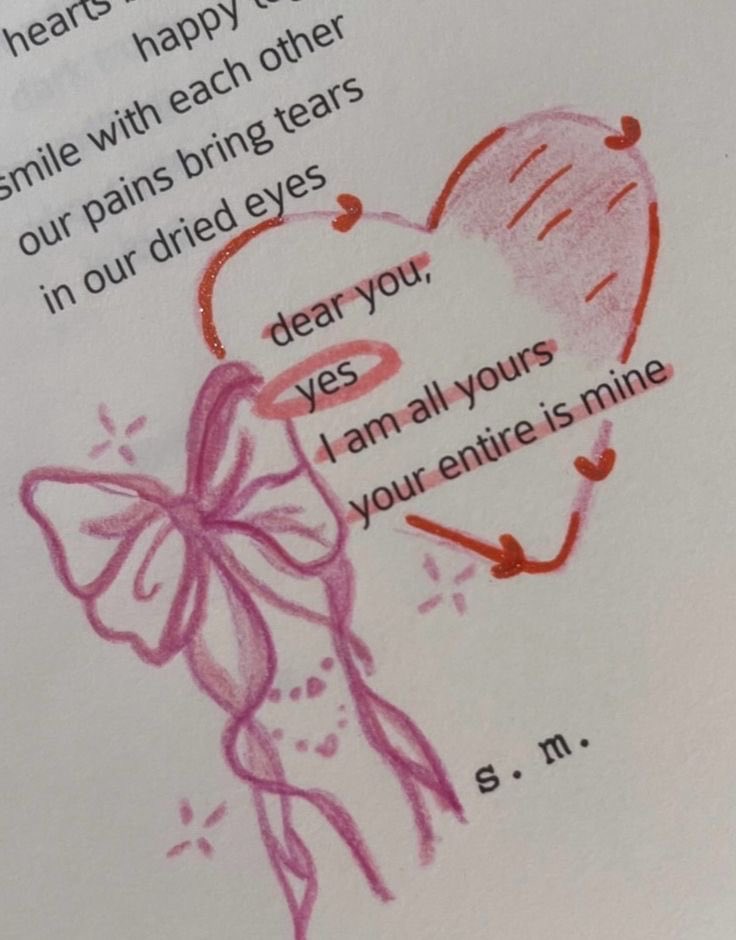 hearts
happy
smile with each other
our pains bring tears
in our dried eyes
dear you,
yes
I am all yours
your entire is mine
s. m.